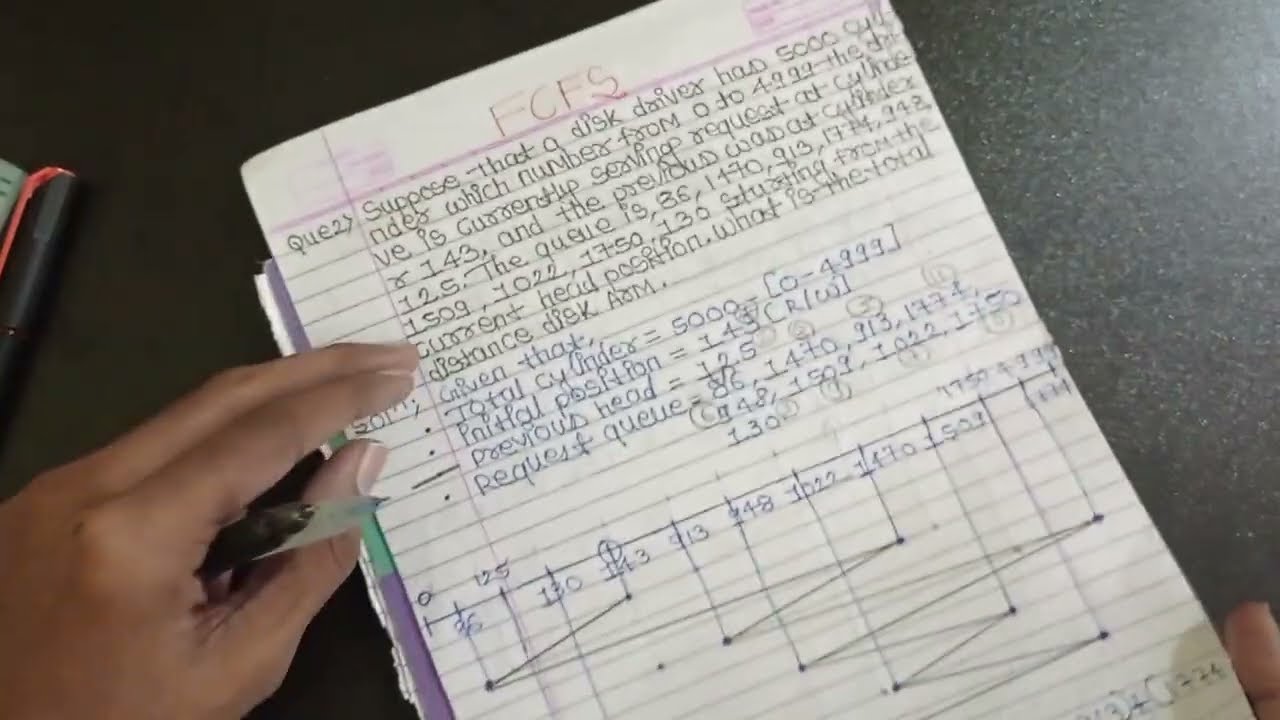 FCFS
Que2) Suppose that a disk driver has 5000 cyli
nder which number from 0 to 4999 the dri
ve is currently serving request at cylinde
r 143, and the previous was at cylinder
125. The queue is, 86, 1470, 913, 1774, 948,
1509, 1022, 1750, 130 starting from the
current head position. what is the total
distance disk Arm.
Soln; Given that,
Total cylinder = 5000 = [0-4999]
Initial position = 143 CR[W]
previous head = 125
Request queue = 86, 1470, 913, 1774,
948, 1509, 1022, 1750
130
0 86 125 130 143 913 948 1022 1470 1509 1750 4999